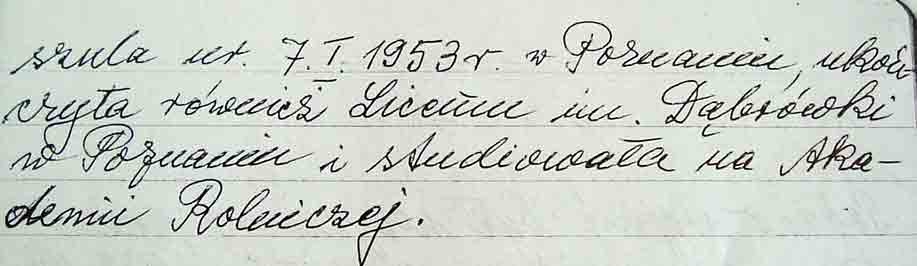 szula ur. 7.I.1953r. w Poznaniu, ukoń-
czyła również Liceum im. Dąbrówki
w Poznaniu i studiowała na Aka-
demii Rolniczej.